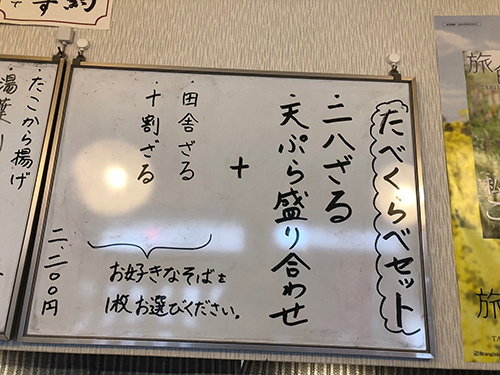 たべくらべセット
・二八ざる
・天ぷら盛り合わせ
+
・田舎ざる
・十割ざる
お好きなそばを
1枚お選びください。
二、二〇〇円
・たこから揚げ
旅
旅